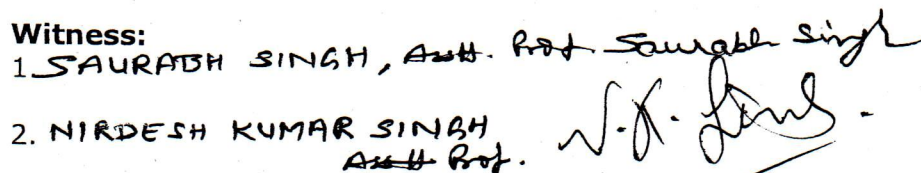 Witness:
1. SAURABH SINGH, Asstt. Prof. Saurabh Singh
2. NIRDESH KUMAR SINGH N.K. Singh.
Asstt Prof.